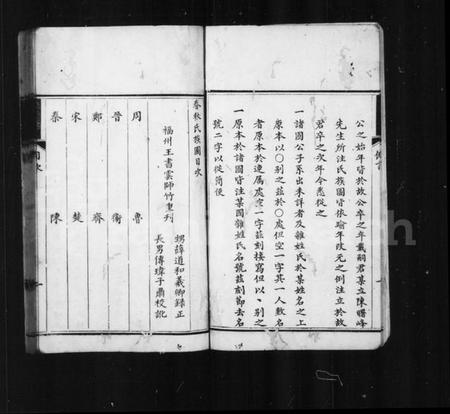 公之始年皆於故公卒之年載嗣君某立陳曙峰
先生所注氏族圖皆依踰年改元之例注立於故
君卒之次年今悉從之
一諸國公子系出未詳者及雜姓氏於某姓名之上
原本以〇別之茲於〇處但空一字其一人數名
者原本於連屬處空一字茲刻接寫但以、別之
一原本於諸圖皆注某國雜姓氏名號茲刻節去名
號二字以從簡便
春秋氏族圖目次
福州王書雲師竹重刊
甥薛道和羲卿錄正
長男傳瑋子肅校訛
周 魯
晉 衛
鄭 齊
宋 楚
秦 陳
目次